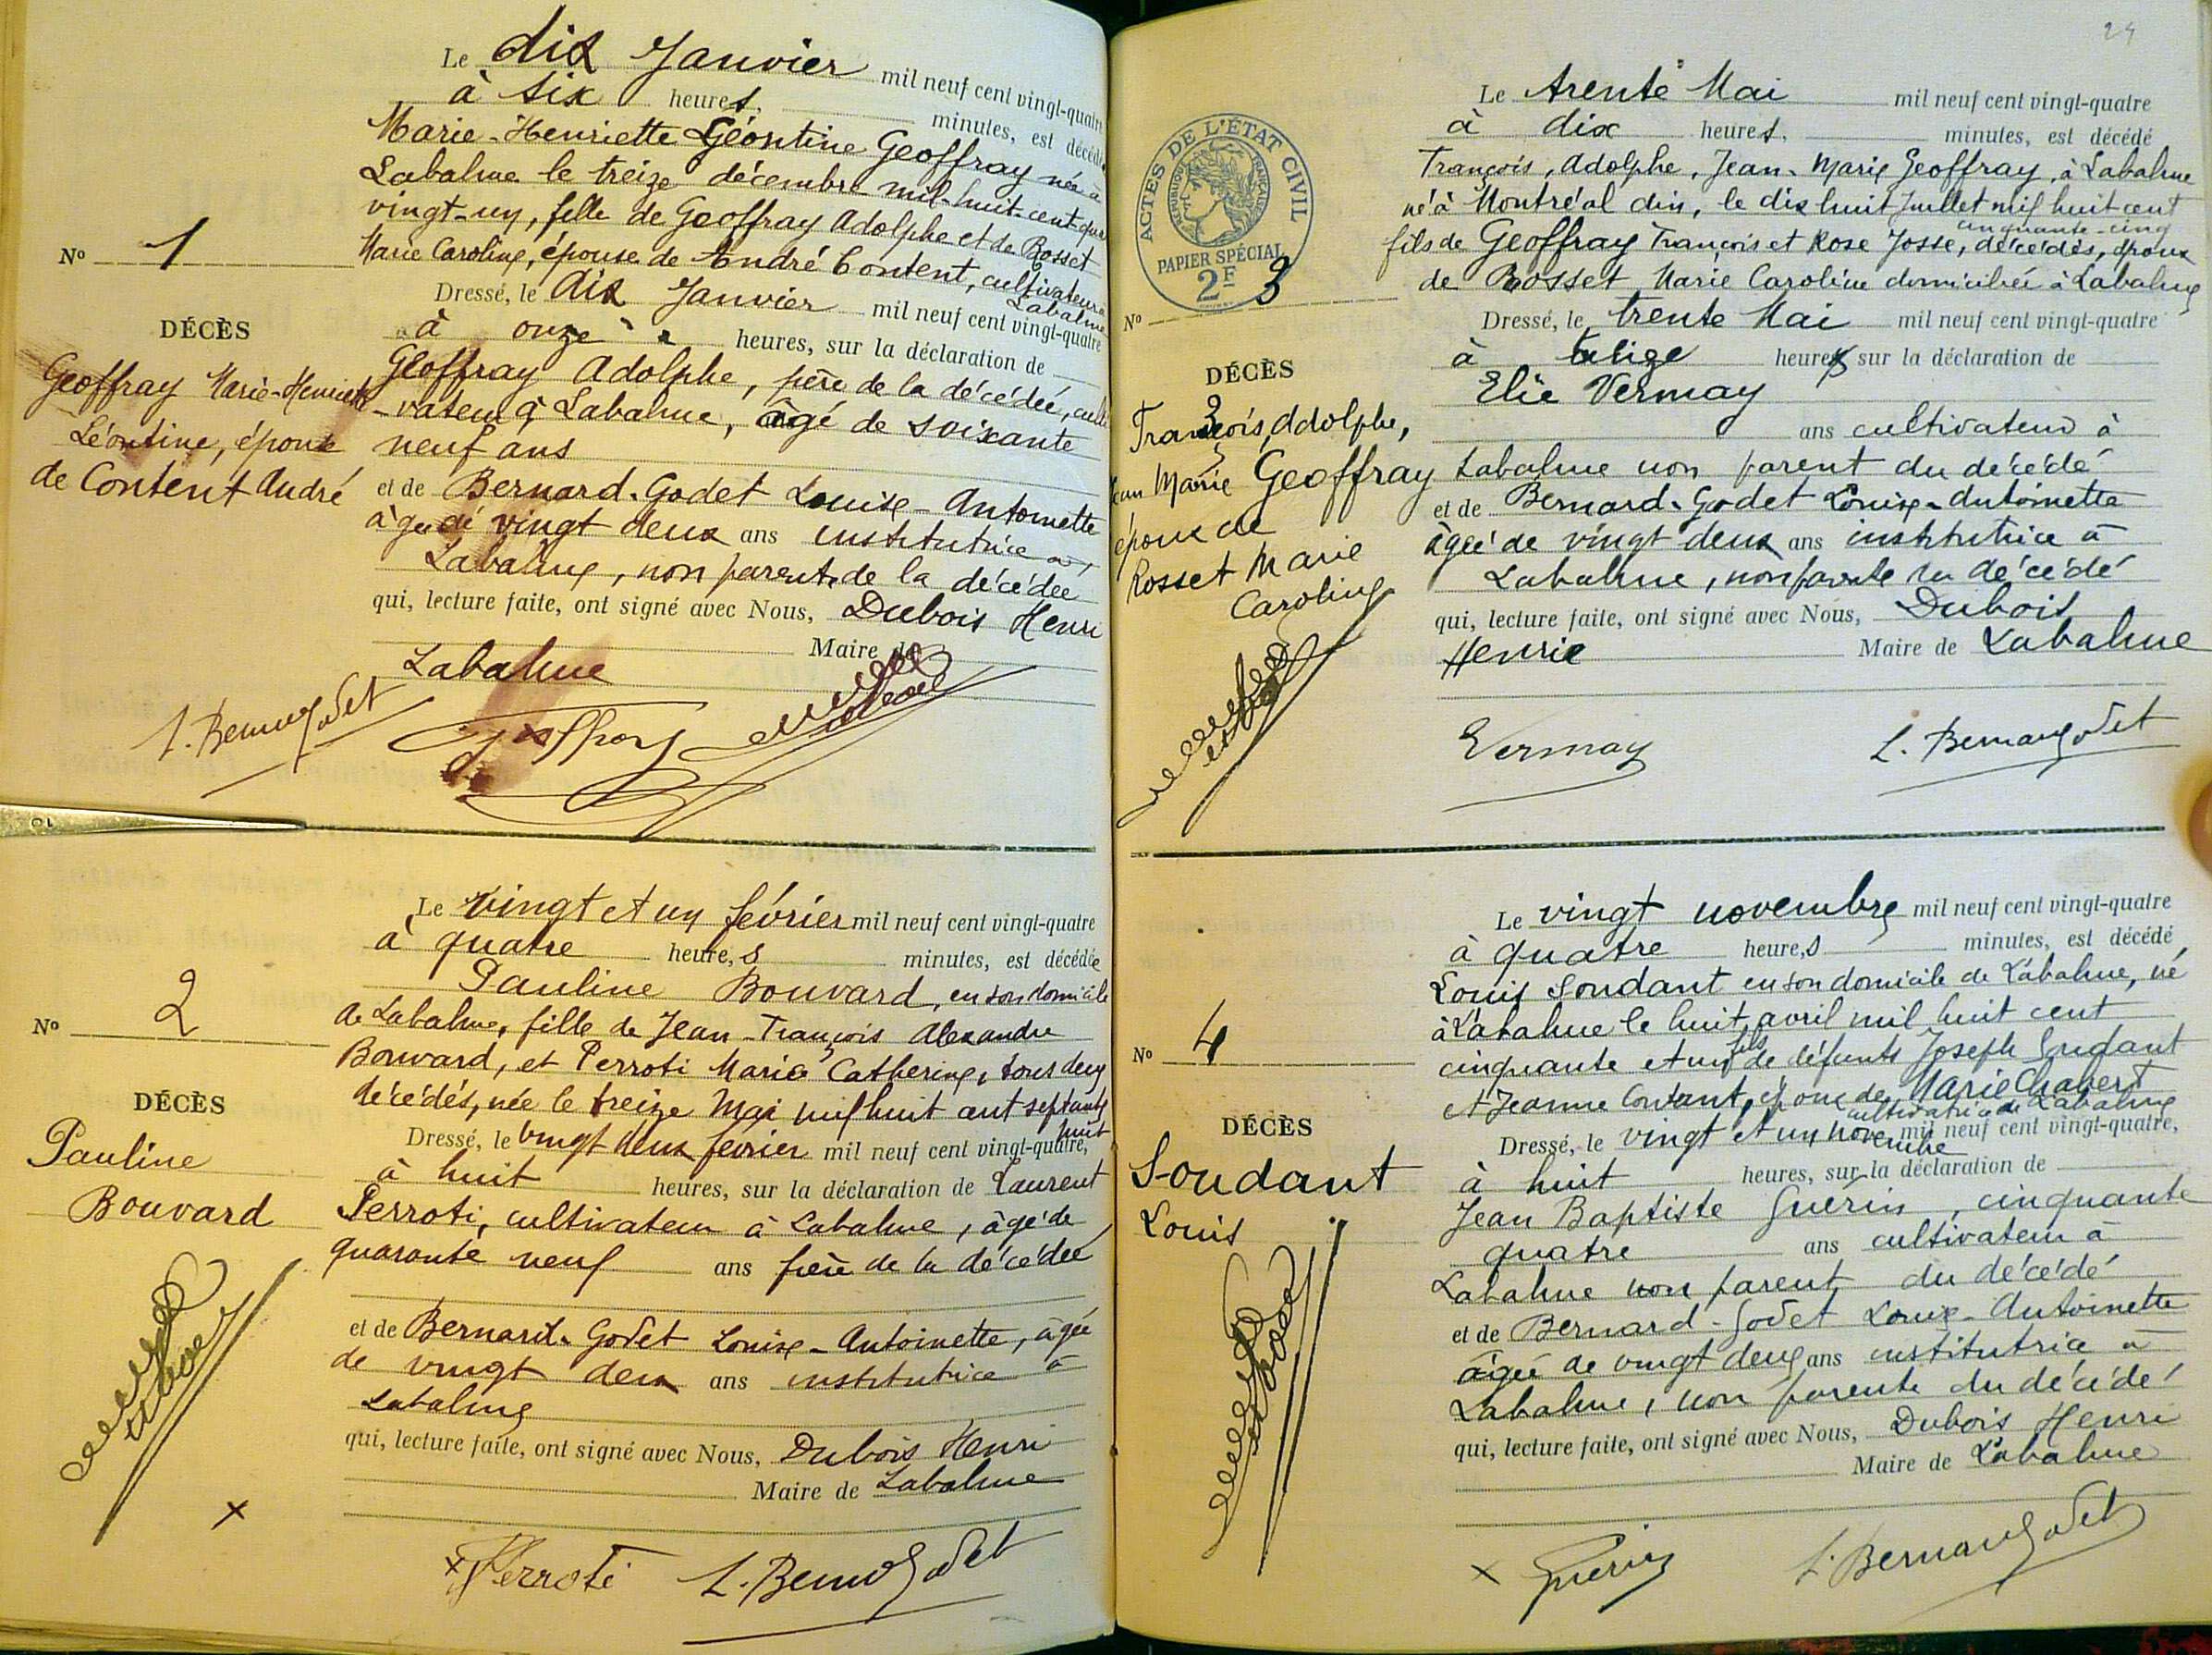 Le dix Janvier mil neuf cent vingt-quatre
à six heures, minutes, est décédée
Marie-Henriette Léontine Geoffray née à
Labalme le treize décembre mil-huit-cent-qua
vingt-un, fille de Geoffray Adolphe et de Rosset
Marie Caroline, épouse de André Content, cultivateurs à
Labalme
Dressé, le dix Janvier mil neuf cent vingt-quatre
à onze heures, sur la déclaration de
Geoffray Adolphe, père de la décédée, culti
-vateur à Labalme, âgé de soixante
neuf ans
et de Bernard-Godet Louise-Antoinette
âgée de vingt deux ans institutrice à
Labalme, non parente de la décédée
qui, lecture faite, ont signé avec Nous, Dubois Henri
Maire de
Labalme
No 1
DÉCÈS
Geoffray Marie-Henriette
Léontine, épouse
de Content André
L. Bernardgodet Geoffray
Le vingt et un février mil neuf cent vingt-quatre
à quatre heure,s minutes, est décédée
Pauline Bouvard, en son domicile
de Labalme, fille de Jean-François Alexandre
Bouvard, et Perroti Marie Catherine, tous deux
décédés, née le treize Mai mil huit cent septante
huit
Dressé, le vingt deux fevrier mil neuf cent vingt-quatre,
à huit heures, sur la déclaration de Laurent
Perroti, cultivateur à Labalme, âgé de
quarante neuf ans frère de la décédée
et de Bernard-Godet Louise-Antoinette, âgée
de vingt deux ans institutrice à
Labalme
qui, lecture faite, ont signé avec Nous, Dubois Henri
Maire de Labalme
No 2
DÉCÈS
Pauline
Bouvard
x
x Perroti L. Bernardgodet
24
ACTES DE L'ÉTAT CIVIL
RÉPUBLIQUE FRANÇAISE
PAPIER SPÉCIAL
2F
Le trente Mai mil neuf cent vingt-quatre
à dix heures, minutes, est décédé
François, Adolphe, Jean-Marie Geoffray, à Labalme
né à Montréal ain, le dix huit Juillet mil huit cent
cinquante-cinq
fils de Geoffray François et Rose Josse, décédés, époux
de Rosset Marie Caroline domiciliée à Labalme
Dressé, le trente Mai mil neuf cent vingt-quatre
à treize heures sur la déclaration de
Elie Vermay
ans cultivateur à
Labalme non parent du décédé
et de Bernard-Godet Louise-Antoinette
âgée de vingt deux ans institutrice à
Labalme, non parente du décédé
qui, lecture faite, ont signé avec Nous, Dubois
Henri Maire de Labalme
No 3
DÉCÈS
François, Adolphe,
Jean Marie Geoffray
époux de
Rosset Marie
Caroline
Vermay L. Bernardgodet
Le vingt novembre mil neuf cent vingt-quatre
à quatre heure,s minutes, est décédé,
Louis Soudant en son domicile de Labalme, né
à Labalme le huit avril mil huit cent
cinquante et un fils de défunts Joseph Soudant
et Jeanne Contant, époux de Marie Chabert
cultivatrice à Labalme
Dressé, le vingt et un novembre mil neuf cent vingt-quatre,
à huit heures, sur la déclaration de
Jean Baptiste Guérin, cinquante
quatre ans cultivateur à
Labalme non parent du décédé
et de Bernard-Godet Louise-Antoinette
âgée de vingt deux ans institutrice à
Labalme, non parente du décédé
qui, lecture faite, ont signé avec Nous, Dubois Henri
Maire de Labalme
No 4
DÉCÈS
Soudant
Louis
x Guérin L. Bernardgodet